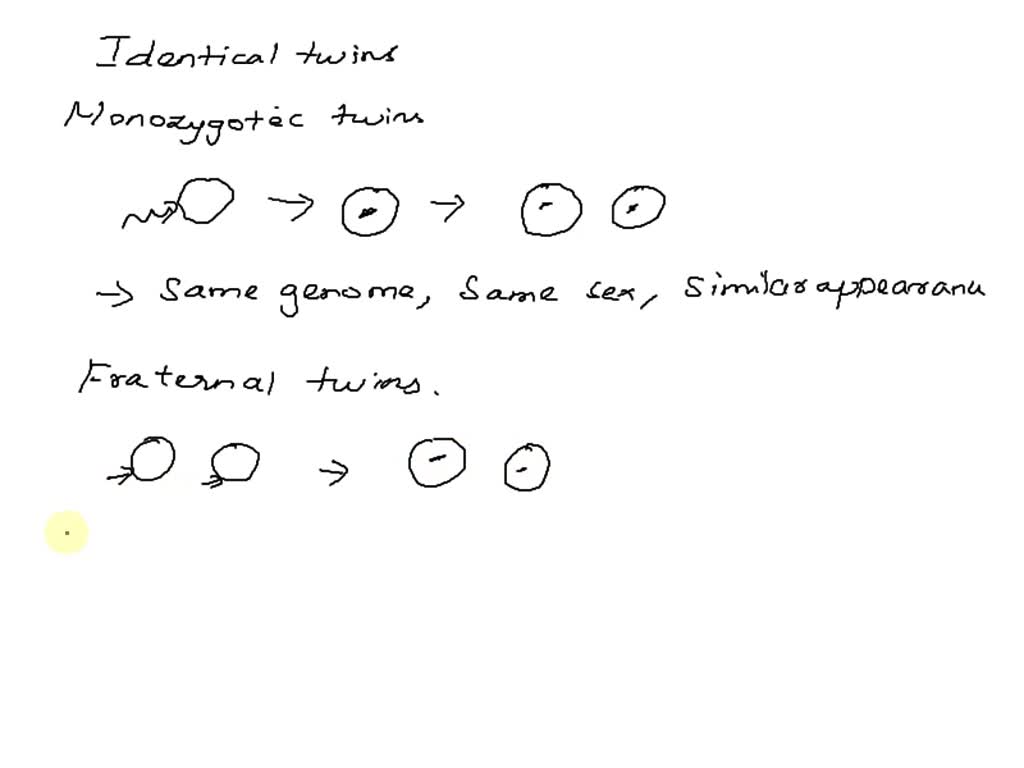 Identical twins
Monozygotic twins
→ Same genome, Same sex, Similar appearance
Fraternal twins.